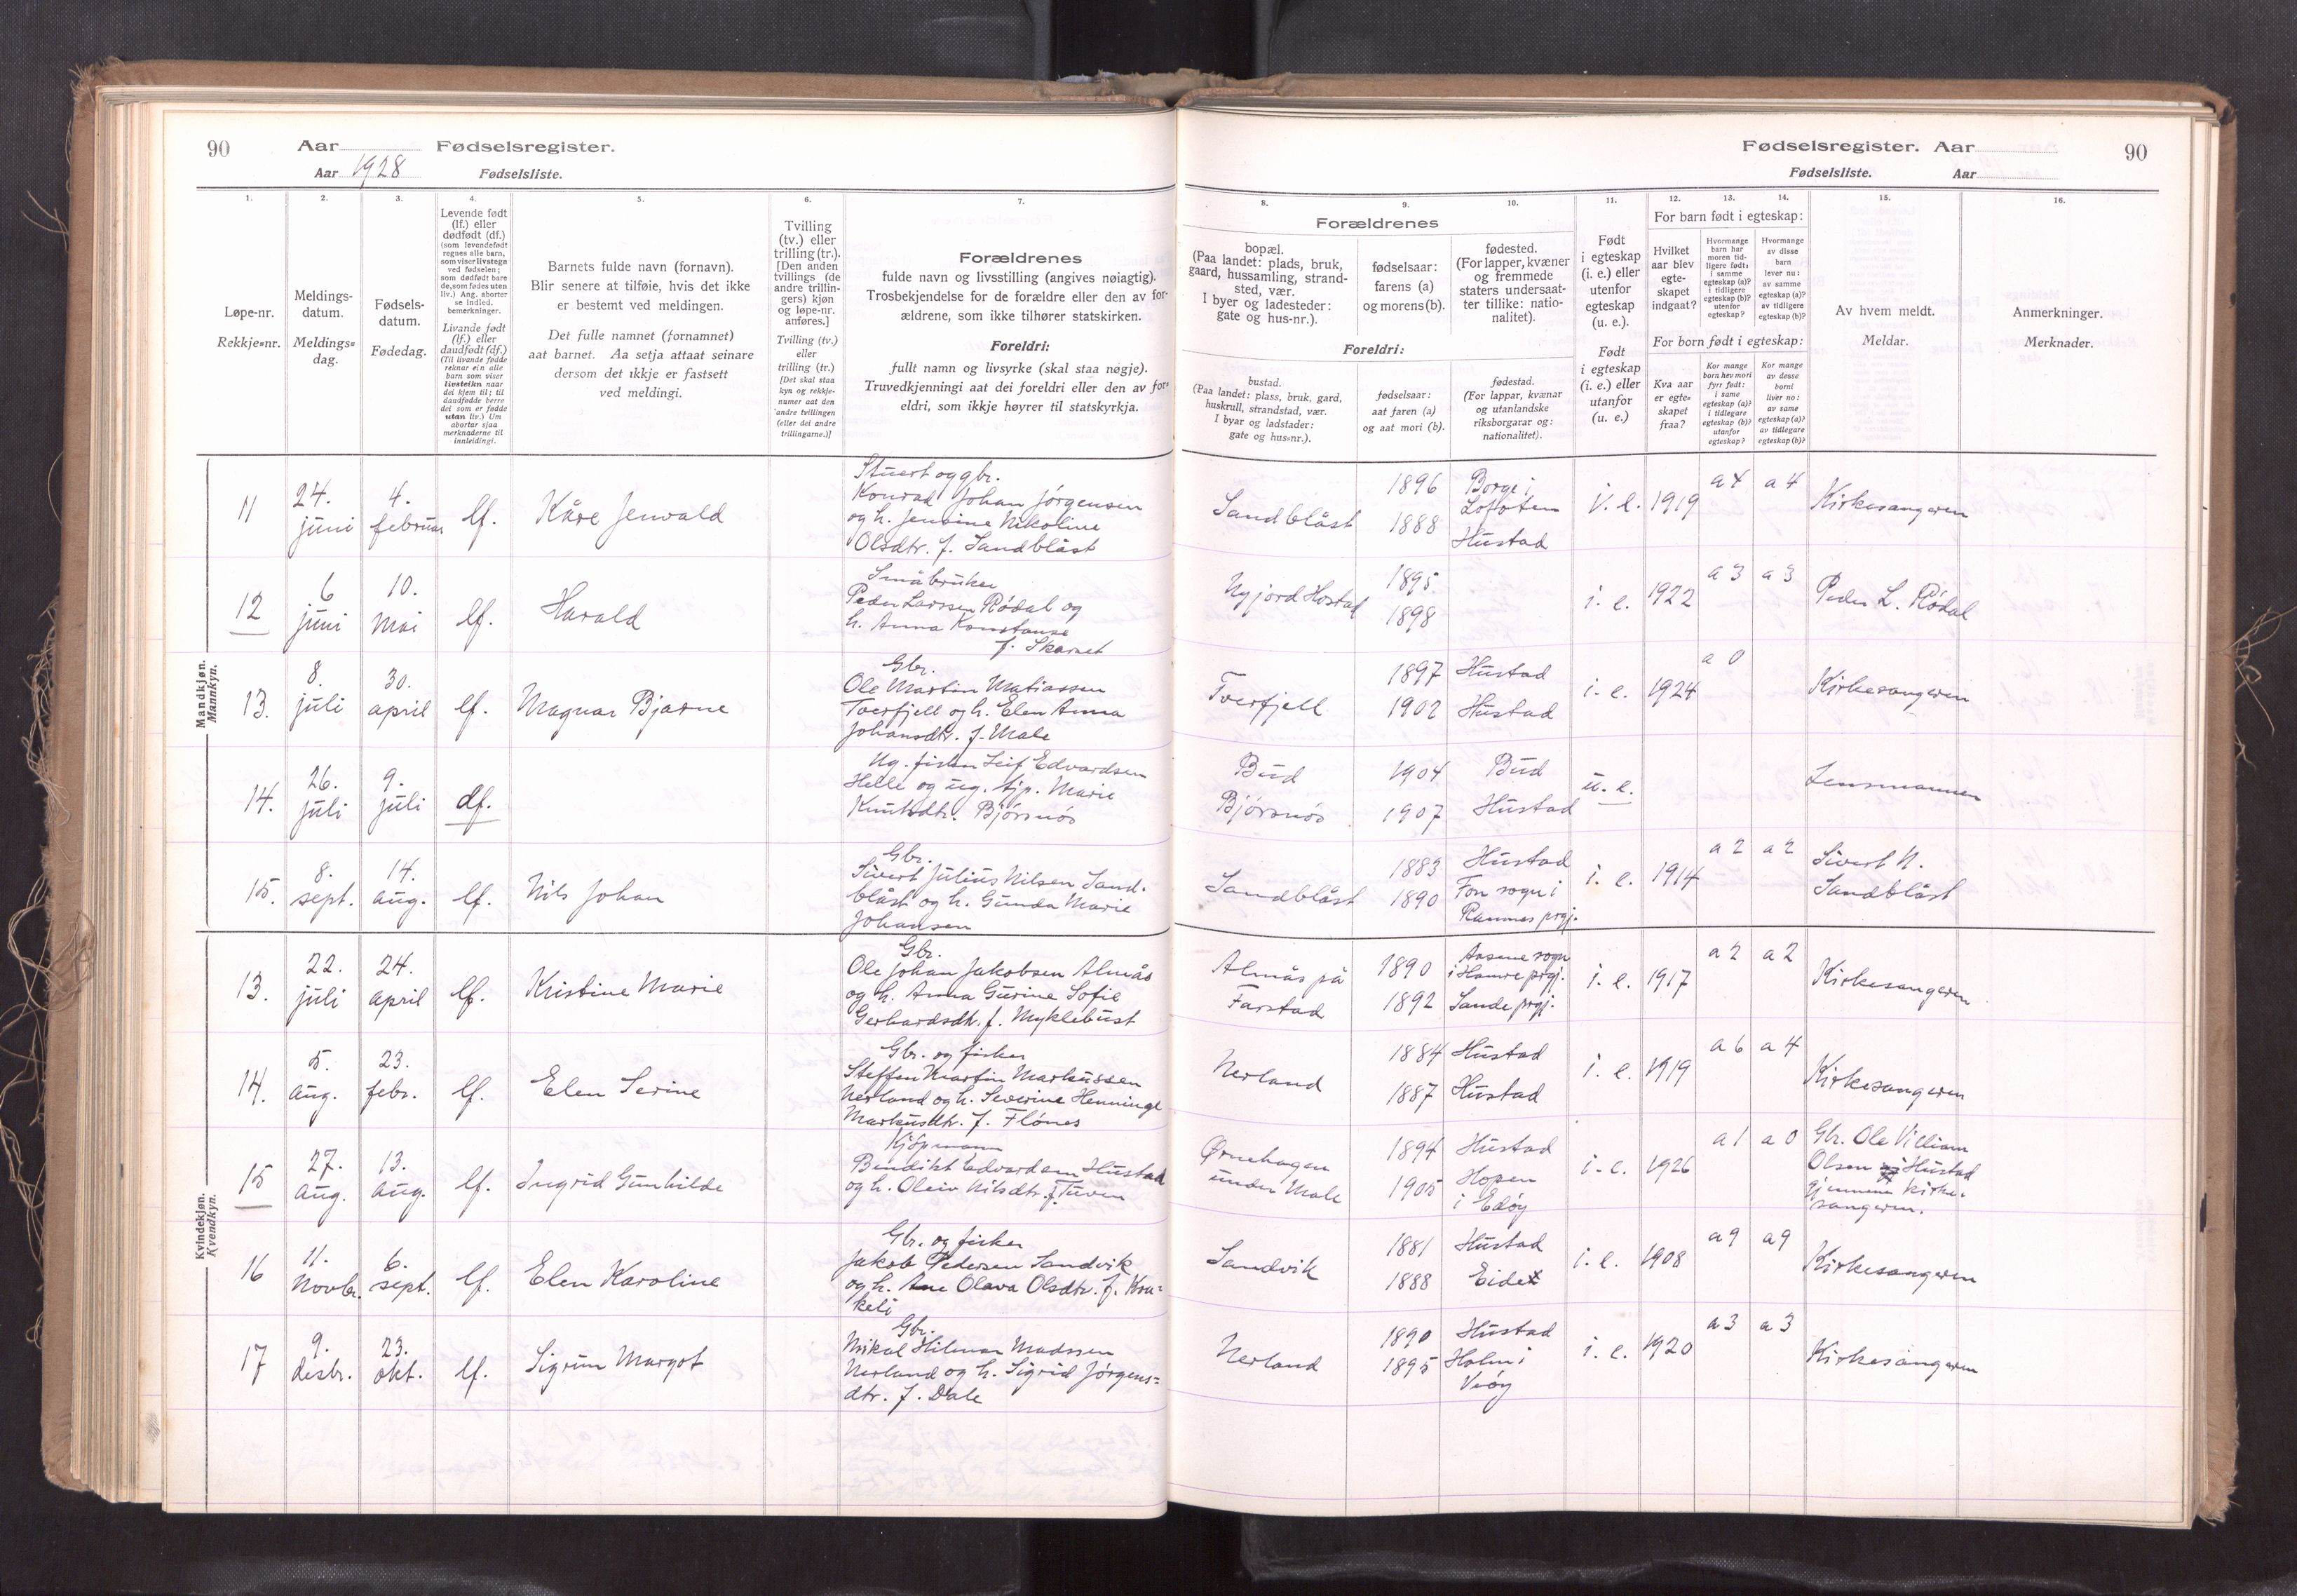 90
Aar
Fødselsregister.
Aar 1928
Fødselsliste.
Fødselsregister. Aar
90
Fødselsliste.
Aar
1.
2.
3.
4.
5.
6.
7.
8.
9.
10.
11.
12.
13.
14.
15.
16.
Løpe-nr.
Rekkje=nr.
Meldings-
datum.
Meldings=
dag.
Fødsels-
datum.
Fødedag.
Levende født
(lf.) eller
dødfødt (df.)
(som levendefødt
regnes alle barn,
som viser livstegn
ved fødselen;
som dødfødt bare
de, som fødes uten
liv.) Ang. aborter
se indled.
bemerkninger.
Livande født
(lf.) eller
daudfødt (df.)
(Til livande fødde
reknar ein alle
barn som viser
livsteikn naar
dei kjem til; til
daudfødde berre
dei som er fødde
utan liv.) Um
abortar sjaa
merknaderne til
innleidingi.
Barnets fulde navn (fornavn).
Blir senere at tilføie, hvis det ikke
er bestemt ved meldingen.
Det fulle namnet (fornamnet)
aat barnet. Aa setja attaat seinare
dersom det ikkje er fastsett
ved meldingi.
Tvilling
(tv.) eller
trilling (tr.).
[Den anden
tvillings (de
andre trillin-
gers) kjøn
og løpe-nr.
anføres.]
Tvilling (tv.)
eller
trilling (tr.)
[Det skal staa
kyn og rekkje-
numer aat den
andre tvillingen
(eller dei andre
trillingarne.)]
Forældrenes
fulde navn og livsstilling (angives nøiagtig).
Trosbekjendelse for de forældre eller den av for-
ældrene, som ikke tilhører statskirken.
Foreldri:
fullt namn og livsyrke (skal staa nøgje).
Truvedkjenningi aat dei foreldri eller den av for=
eldri, som ikkje høyrer til statskyrkja.
Forældrenes
bopæl.
(Paa landet: plads, bruk,
gaard, hussamling, strand-
sted, vær.
I byer og ladesteder:
gate og hus-nr.).
fødselsaar:
farens (a)
og morens (b).
fødested.
(For lapper, kvæner
og fremmede
staters undersaat-
ter tillike: natio-
nalitet).
Foreldri:
bustad.
(Paa landet: plass, bruk, gard,
huskrull, strandstad, vær.
I byar og ladstader:
gate og hus=nr.).
fødselsaar:
aat faren (a)
og aat mori (b).
fødestad.
(For lappar, kvænar
og utanlandske
riksborgarar og:
nationalitet).
Født
i egteskap
(i. e.) eller
utenfor
egteskap
(u. e.).
Født
i egteskap
(i. e.) eller
utanfor
(u. e.)
For barn født i egteskap:
Hvilket
aar blev
egte-
skapet
indgaat?
Hvormange
barn har
moren tid-
ligere født:
i samme
egteskap (a)?
i tidligere
egteskap (b)?
utenfor
egteskap?
Hvormange
av disse
barn
lever nu:
av samme
egteskap (a)?
av tidligere
egteskap (b)?
For born født i egteskap:
Kva aar
er egte=
skapet
fraa?
Kor mange
born hev mori
fyrr født:
i same
egteskap (a)?
i tidlegare
egteskap (b)?
utanfor
egteskap?
Kor mange
av desse
borni
liver no:
av same
egteskap (a)?
av tidlegare
egteskap (b)?
Av hvem meldt.
Meldar.
Anmerkninger.
Merknader.
Mandkjøn.
Mannkyn.
11
24. juni
4. februar
lf.
Kåre Jenvald
Stuert og gbr.
Konrad Johan Jørgensen
og h. Jensine Nikoline
Olsdtr. f. Sandblåst
Sandblåst
1896
1888
Borge i
Lofoten
Hustad
i. e.
1919
a 4
a 4
Kirkesangeren
12
6 juni
10. mai
lf.
Harald
Småbruker
Peder Larssen Rødal og
h. Anna Konstanse
f. Skaret
Nyjord Hostad
1895
1898
i. e.
1922
a 3
a 3
Peder L. Rødal
13.
8. juli
30. april
lf.
Magnar Bjarne
Gbr.
Ole Martin Matiassen
Tverfjell og h. Elen Anna
Johansdtr. f. Male
Tverfjell
1897
1902
Hustad
Hustad
i. e.
1924
a 0
Kirkesangeren
14.
26. juli
9. juli
df.
Ug. fisker Leif Edvardsen
Helle og ug. tjp. Marie
Knutsdtr. Bjørsnøs
Bud
Bjørsnøs
1904
1907
Bud
Hustad
u. e.
Lensmannen
15.
8. sept.
14. aug.
lf.
Nils Johan
Gbr.
Sivert Julius Nilsen Sand-
blåst og h. Gunda Marie
Johansen
Sandblåst
1883
1890
Hustad
Fon sogn i
Ramnes prgj.
i. e.
1914
a 2
a 2
Sivert N.
Sandblåst
Kvindekjøn.
Kvendkyn.
13.
22. juli
24. april
lf.
Kristine Marie
Gbr.
Ole Johan Jakobsen Almås
og h. Anna Gurine Sofie
Gerhardsdtr. f. Myklebust
Almås på
Farstad
1890
1892
Aasene sogn
i Hamre prgj.
Sande prgj.
i. e.
1917
a 2
a 2
Kirkesangeren
14.
5. aug.
23. febr.
lf.
Elen Serine
Gbr. og fisker
Steffen Martin Markussen
Nerland og h. Severine Henninge
Markusdtr. f. Flønes
Nerland
1884
1887
Hustad
Hustad
i. e.
1919
a 6
a 4
Kirkesangeren
15
27. aug.
13. aug.
lf.
Ingrid Gunhilde
Kjøpmann
Bendikt Edvardsen Hustad
og h. Oleiv Nilsdtr. f. Tuven
Ørnehagen
under Male
1894
1905
Hustad
Hopen
i Edøy
i. e.
1926
a 1
a 0
Gbr. Ole Villiam
Olsen Hustad
gjennem kirke-
sangeren.
16
11. Novbr.
6. sept.
lf.
Elen Karoline
Gbr. og fisker
Jakob Pedersen Sandvik
og h. Ane Olava Olsdtr. f. Kra=
keli
Sandvik
1881
1888
Hustad
Eide
i. e.
1908
a 9
a 9
Kirkesangeren
17
9. desbr.
23. okt.
lf.
Sigrun Margot
Gbr.
Mikal Hilmar Madssen
Nerland og h. Sigrid Jørgens=
dtr. f. Dale
Nerland
1890
1895
Hustad
Holm i
Veøy
i. e.
1920
a 3
a 3
Kirkesangeren